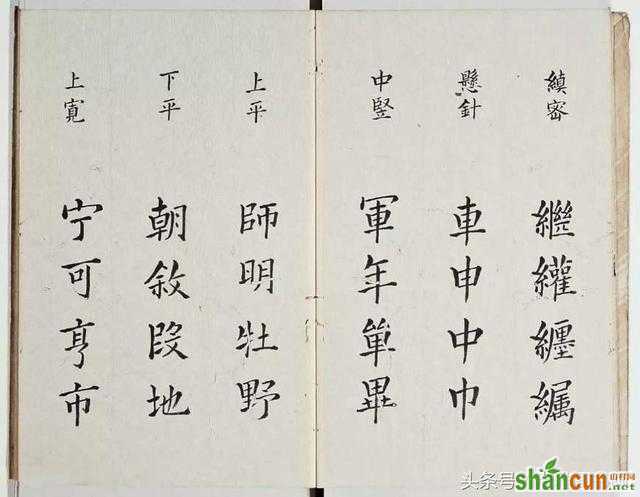 縝密
繼纏纏纊
懸針
車申中巾
中竪
軍年單畢
上平
師明牡野
下平
朝敘段地
上寬
宁可亨市
头条号
shancun
.net